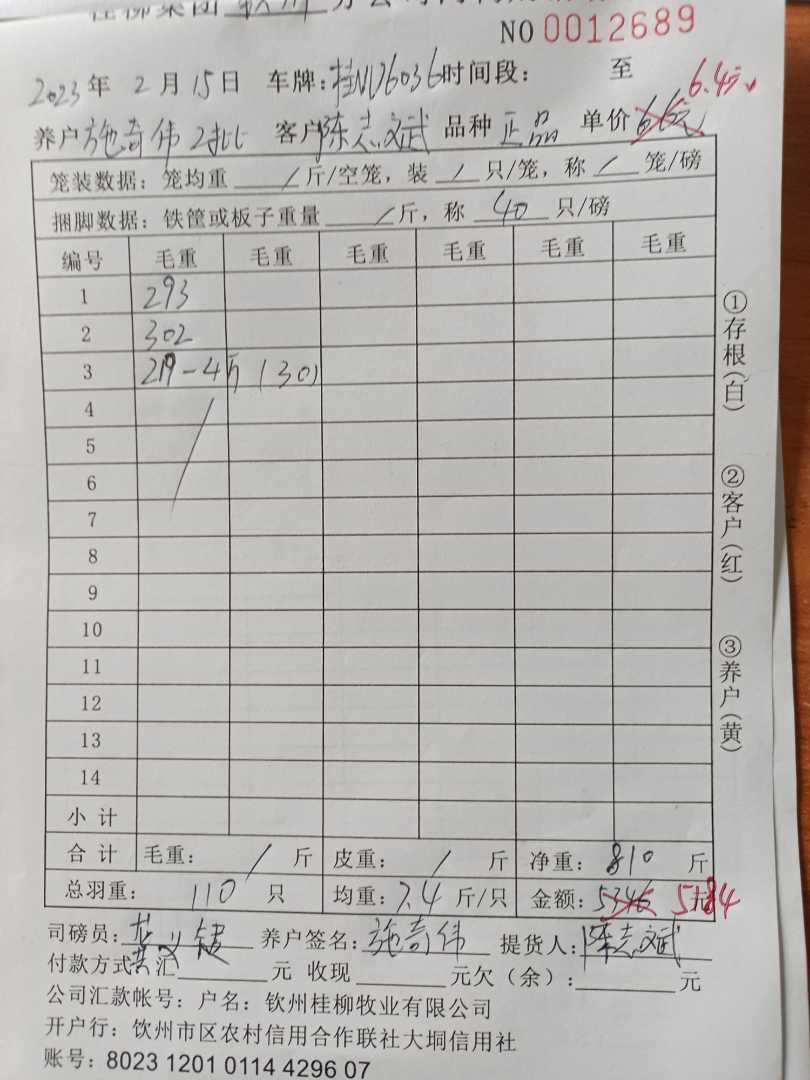 桂柳集团 钦州 分公司
NO 0012689
2023年 2月15日 车牌:桂NU6036 时间段: 至
6.4元
养户 施奇伟 2批 客户 陈志斌 品种 正品 单价 6.6元
笼装数据: 笼均重 / 斤/空笼, 装 / 只/笼, 称 / 笼/磅
捆脚数据: 铁筐或板子重量 / 斤, 称 40 只/磅
编号 毛重 毛重 毛重 毛重 毛重 毛重
1 293
2 302
3 219-4斤 (30)
4
5
6
7
8
9
10
11
12
13
14
小 计
合 计 毛重: / 斤 皮重: / 斤 净重: 810 斤
总羽重: 110 只 均重: 7.4 斤/只 金额: 5346 元 5184
司磅员: 养户签名: 施奇伟 提货人: 陈志斌
付款方式: 汇 元 收现 元欠(余): 元
公司汇款帐号: 户名: 钦州桂柳牧业有限公司
开户行: 饮州市区农村信用合作联社大垌信用社
账号: 8023 1201 0114 4296 07
①存根(白)
②客户(红)
③养户(黄)